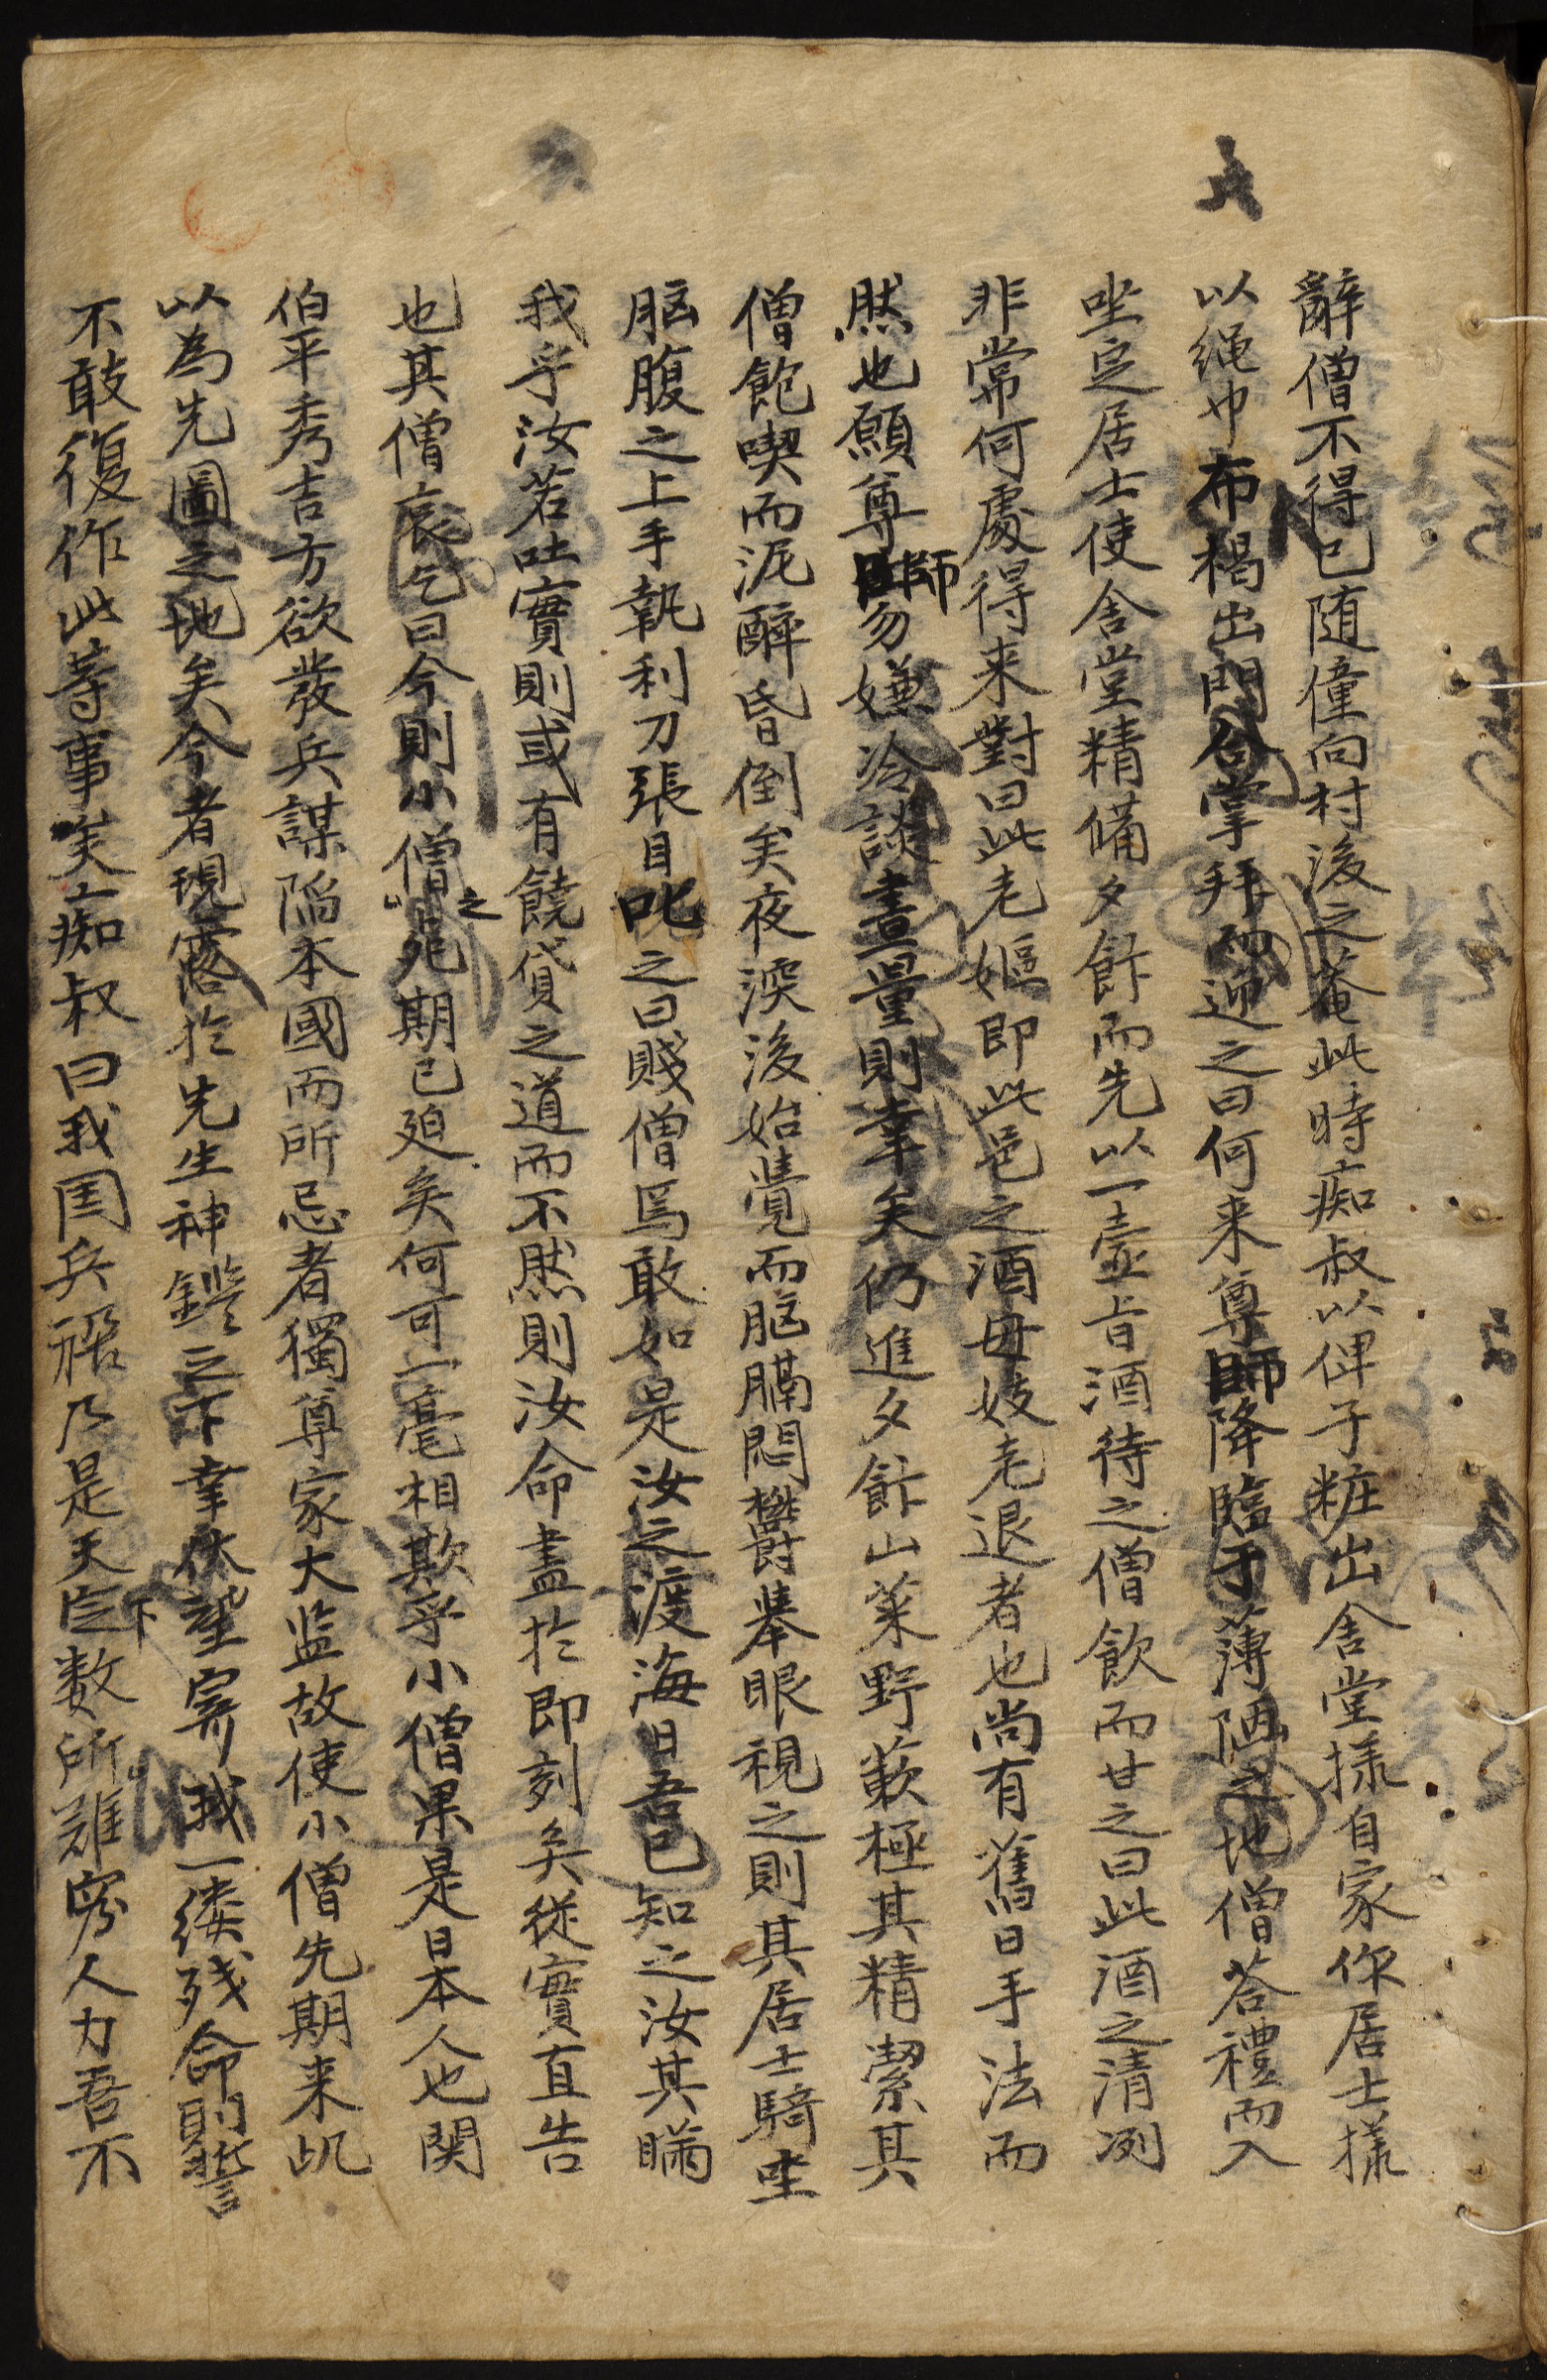 辭僧不得已随僮向村後之菴此時痴叔以俾子粧出舍堂㨾自家作居士㨾
以䋲巾布褐出門合掌拜而迎之曰何来尊師降臨于薄陋之地僧荅禮而入
坐定居士使舍堂精備夕飰而先以一壶旨酒待之僧飲而甘之曰此酒之清冽
非常何處得来對曰此老嫗即此邑之酒母妓老退者也尚有舊日手法而
然也願尊師勿嫌冷談盡量則幸矣仍進夕飰山菜野蔌極其精潔其
僧飽喫而泥醉昏倒矣夜深後始覺而脳膈悶鬱舉眼視之則其居士騎坐
脳腹之上手執利刀張目叱之曰賤僧焉敢如是汝之渡海日吾已知之汝其瞞
我乎汝若吐實則或有饒貸之道而不然則汝命盡於即刻矣從實直告
也其僧哀乞曰今則小僧之死期已廹矣何可一毫相欺乎小僧果是日本人也関
伯平秀吉方欲發兵謀陥本國而所忌者獨尊家大监故使小僧先期来此
以為先圖之地矣今者現露於先生神鑑之下幸伏望寄我一縷残命則誓
不敢復作此等事矣痴叔曰我国兵禍乃是天定数所難容人力吾不